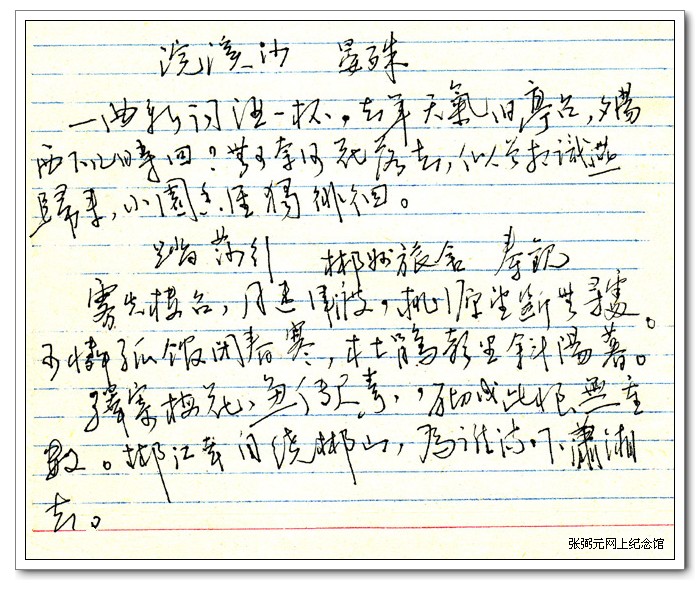 浣溪沙 晏殊
一曲新词酒一杯。去年天氣旧亭台,夕陽
西下几时回?無可奈何花落去,似曾相識燕
歸来,小園香径獨徘徊。
踏莎行 郴州旅舍 秦觀
雾失楼台,月迷津渡,桃源望断無尋處。
可堪孤馆闭春寒,杜鹃声里斜陽暮。
驛寄梅花,魚传尺素,砌成此恨無重
数。郴江幸自绕郴山,為谁流下瀟湘
去。
张弼元网上纪念馆